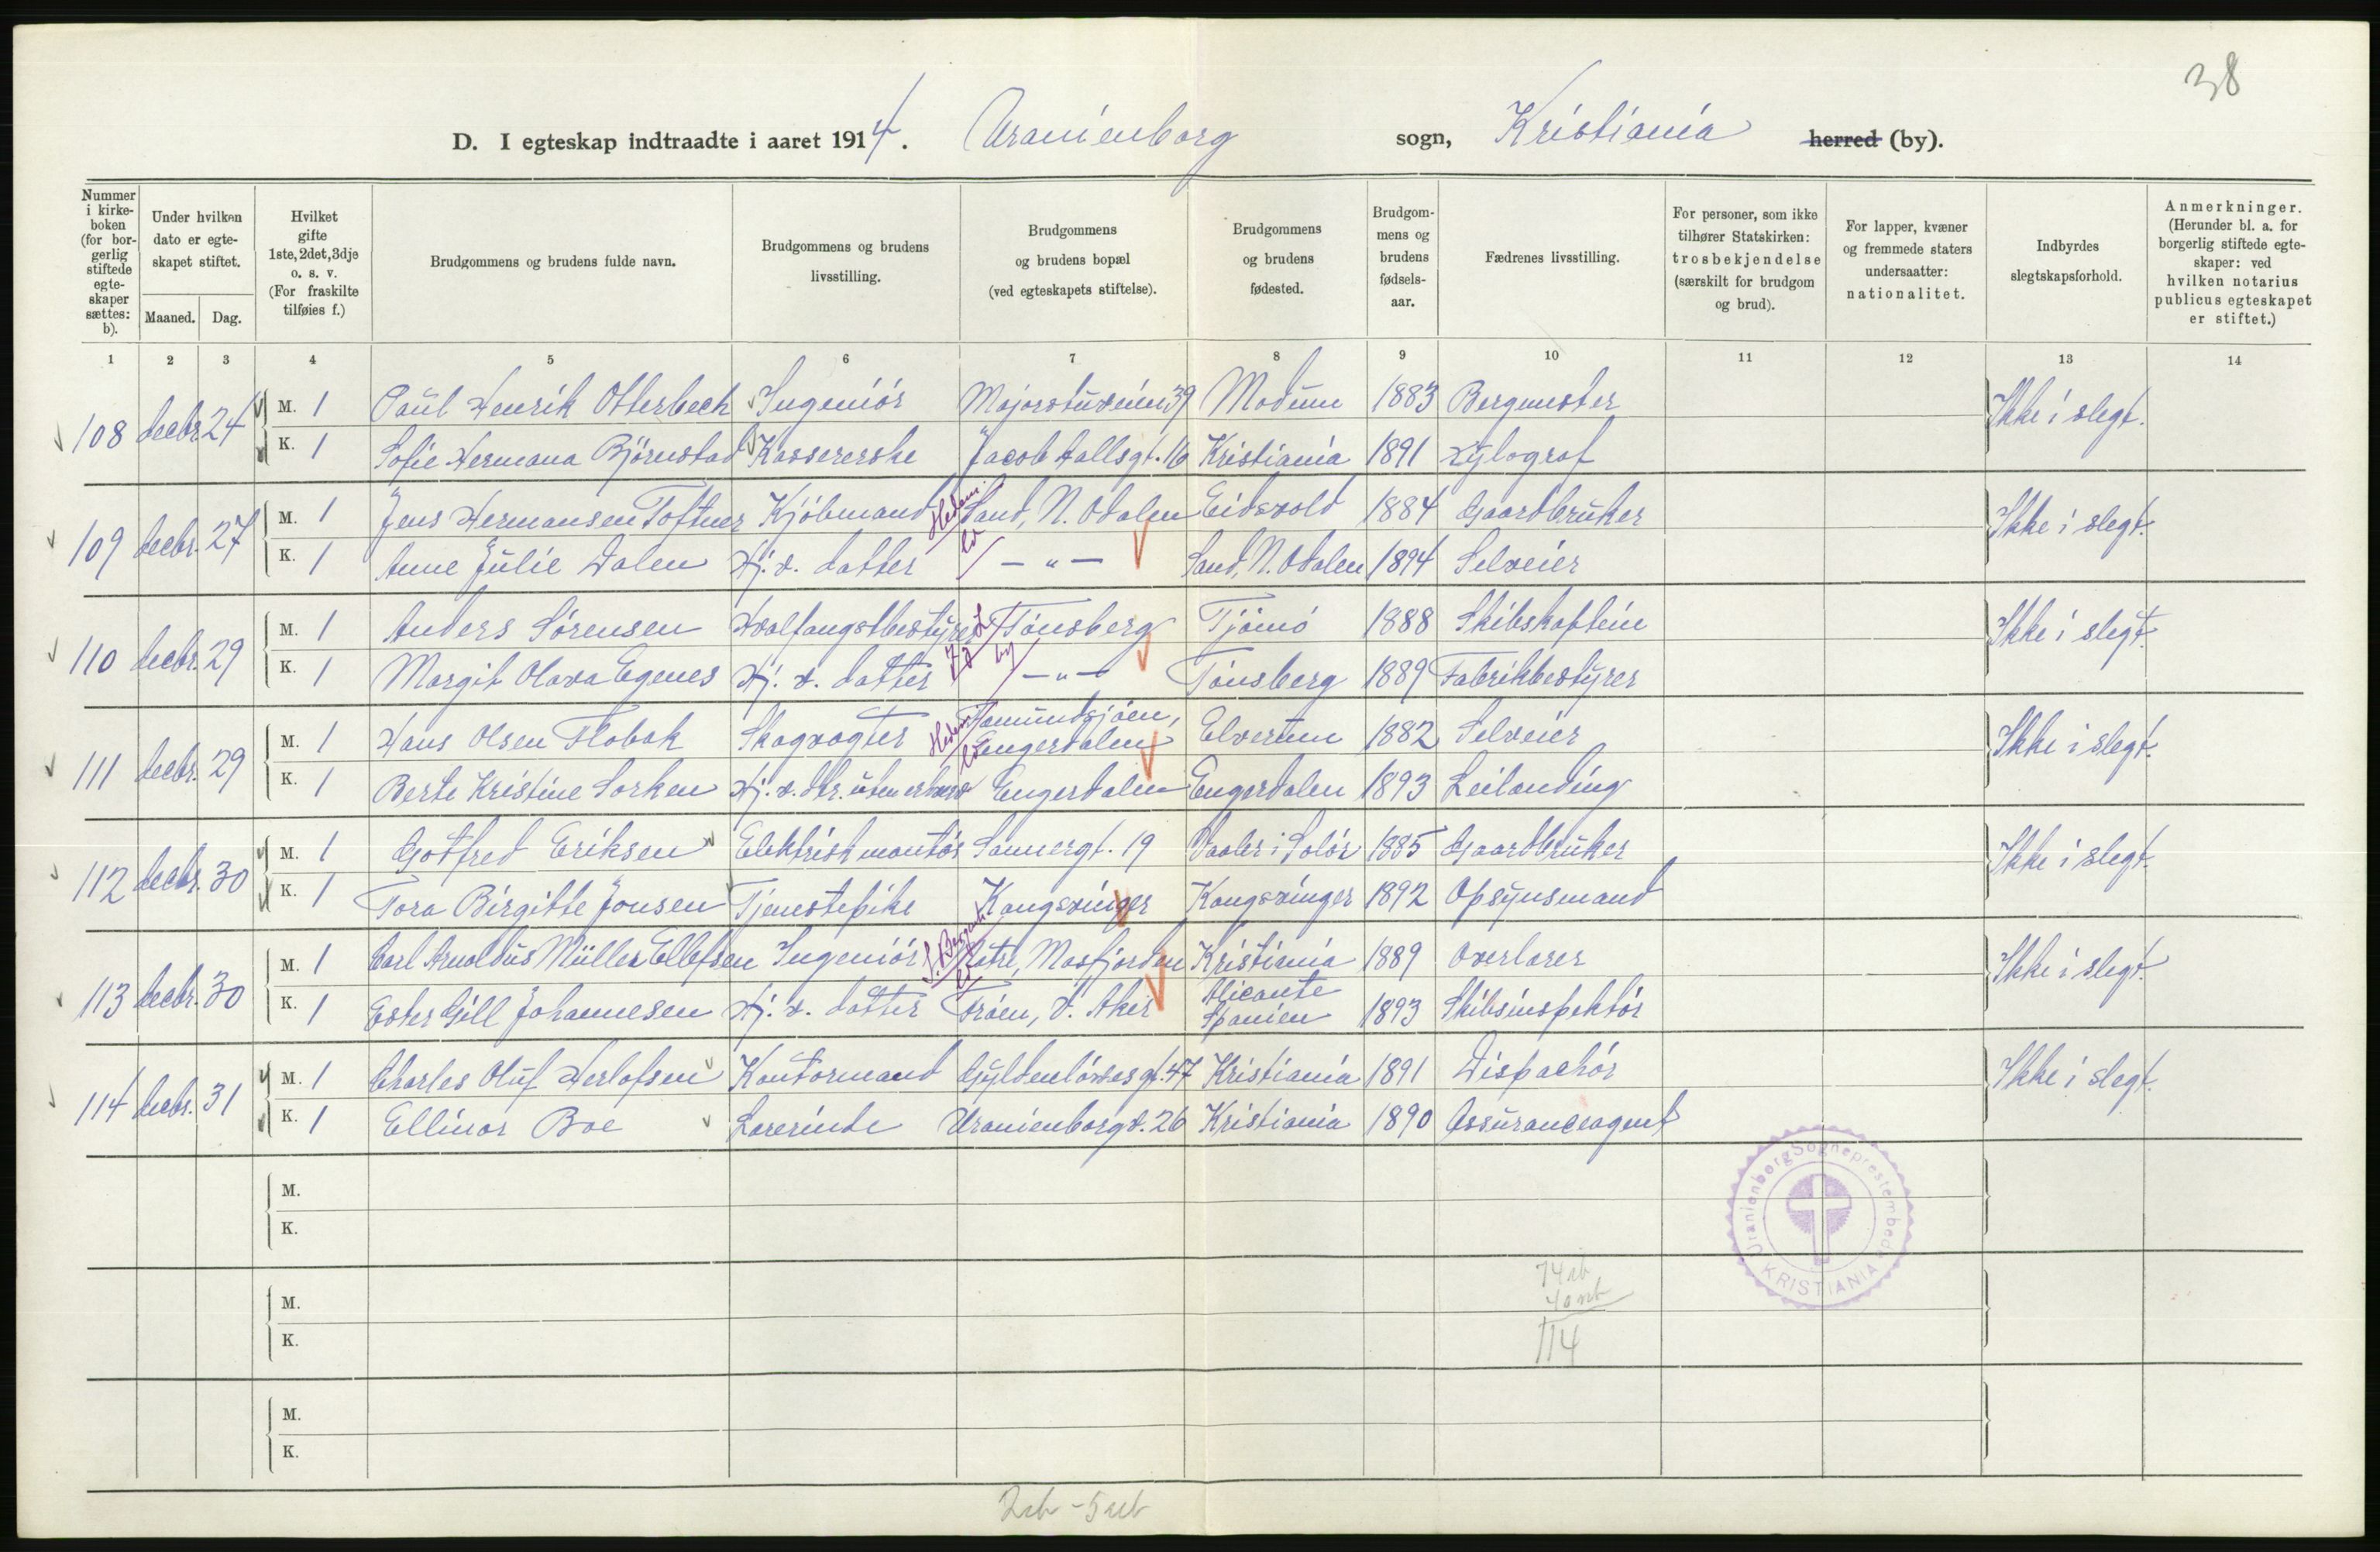 38
D. I egteskap indtraadte i aaret 1914. Uranienborg sogn, Kristiania herred (by).
Nummer i kirke-boken (for bor-gerlig stiftede egte-skaper sættes: b).
Under hvilken dato er egte-skapet stiftet.
Maaned. Dag.
Hvilket gifte 1ste, 2det, 3dje o. s. v. (For fraskilte tilføies f.)
Brudgommens og brudens fulde navn.
Brudgommens og brudens livsstilling.
Brudgommens og brudens bopæl (ved egteskapets stiftelse).
Brudgommens og brudens fødested.
Brudgom-mens og brudens fødsels-aar.
Fædrenes livsstilling.
For personer, som ikke tilhører Statskirken: trosbekjendelse (særskilt for brudgom og brud).
For lapper, kvæner og fremmede staters undersaatter: nationalitet.
Indbyrdes slegtskapsforhold.
Anmerkninger. (Herunder bl. a. for borgerlig stiftede egte-skaper: ved hvilken notarius publicus egteskapet er stiftet.)
1 2 3 4 5 6 7 8 9 10 11 12 13 14
108 decbr 24 M. 1 Paul Henrik Otterbech Ingeniör Majorstuveien 39 Modum 1883 Bergmester Ikke i slegt.
K. 1 Sofie Hermana Björnstad Kassererske Jacob Aallsgt. 16 Kristiania 1891 Xylograf
109 decbr. 27 M. 1 Jens Hermansen Toftner Kjöbmand Hedem. ld Sand, N. Odalen Eidsvold 1884 Gaardbruker Ikke i slegt.
K. 1 Anne Julie Dalen Hj. v. datter — " — Sand, N. Odalen 1894 Selveier
110 decbr. 29 M. 1 Anders Sörensen Hvalfangstbestyrer Tönsberg by Tjömö 1888 Skibskaptein Ikke i slegt.
K. 1 Margit Olava Egenes Hj. v. datter — " — Tönsberg 1889 Fabrikbestyrer
111 decbr. 29 M. 1 Hans Olsen Flobak Skogvogter Hedem ld Famundsjöen, Engerdalen Elverum 1882 Selveier Ikke i slegt.
K. 1 Berte Kristine Sorken Hj. v. dtr. uten erhverv Engerdalen Engerdalen 1893 Leilending
112 decbr. 30 M. 1 Gotfred Eriksen Elektrisk montör Sannergt. 19 Vaaler i Solör 1885 Gaardbruker Ikke i slegt.
K. 1 Tora Birgitte Jonsen Tjenestepike Kongsvinger Kongsvinger 1892 Opsynsmand
113 decbr. 30 M. 1 Carl Arnoldus Müller Ellefsen Ingeniör S. Bergenh. ld Matre, Masfjorden Kristiania 1889 Overlærer Ikke i slegt.
K. 1 Ester Gill Johannesen Hj. v. datter Fröen, V. Aker Alicante Spanien 1893 Skibsinspektör
114 decbr. 31 M. 1 Charles Oluf Herlofsen Kontormand Gyldenlövesgt. 47 Kristiania 1891 Dispachör Ikke i slegt.
K. 1 Ellinor Boe Lærerinde Uranienborgv. 26 Kristiania 1890 Assuranceagent
M.
K.
M.
K.
M.
K.
Uranienborg Sogneprestembede KRISTIANIA
74 ib
40 ub
114
2 ib - 5 ub